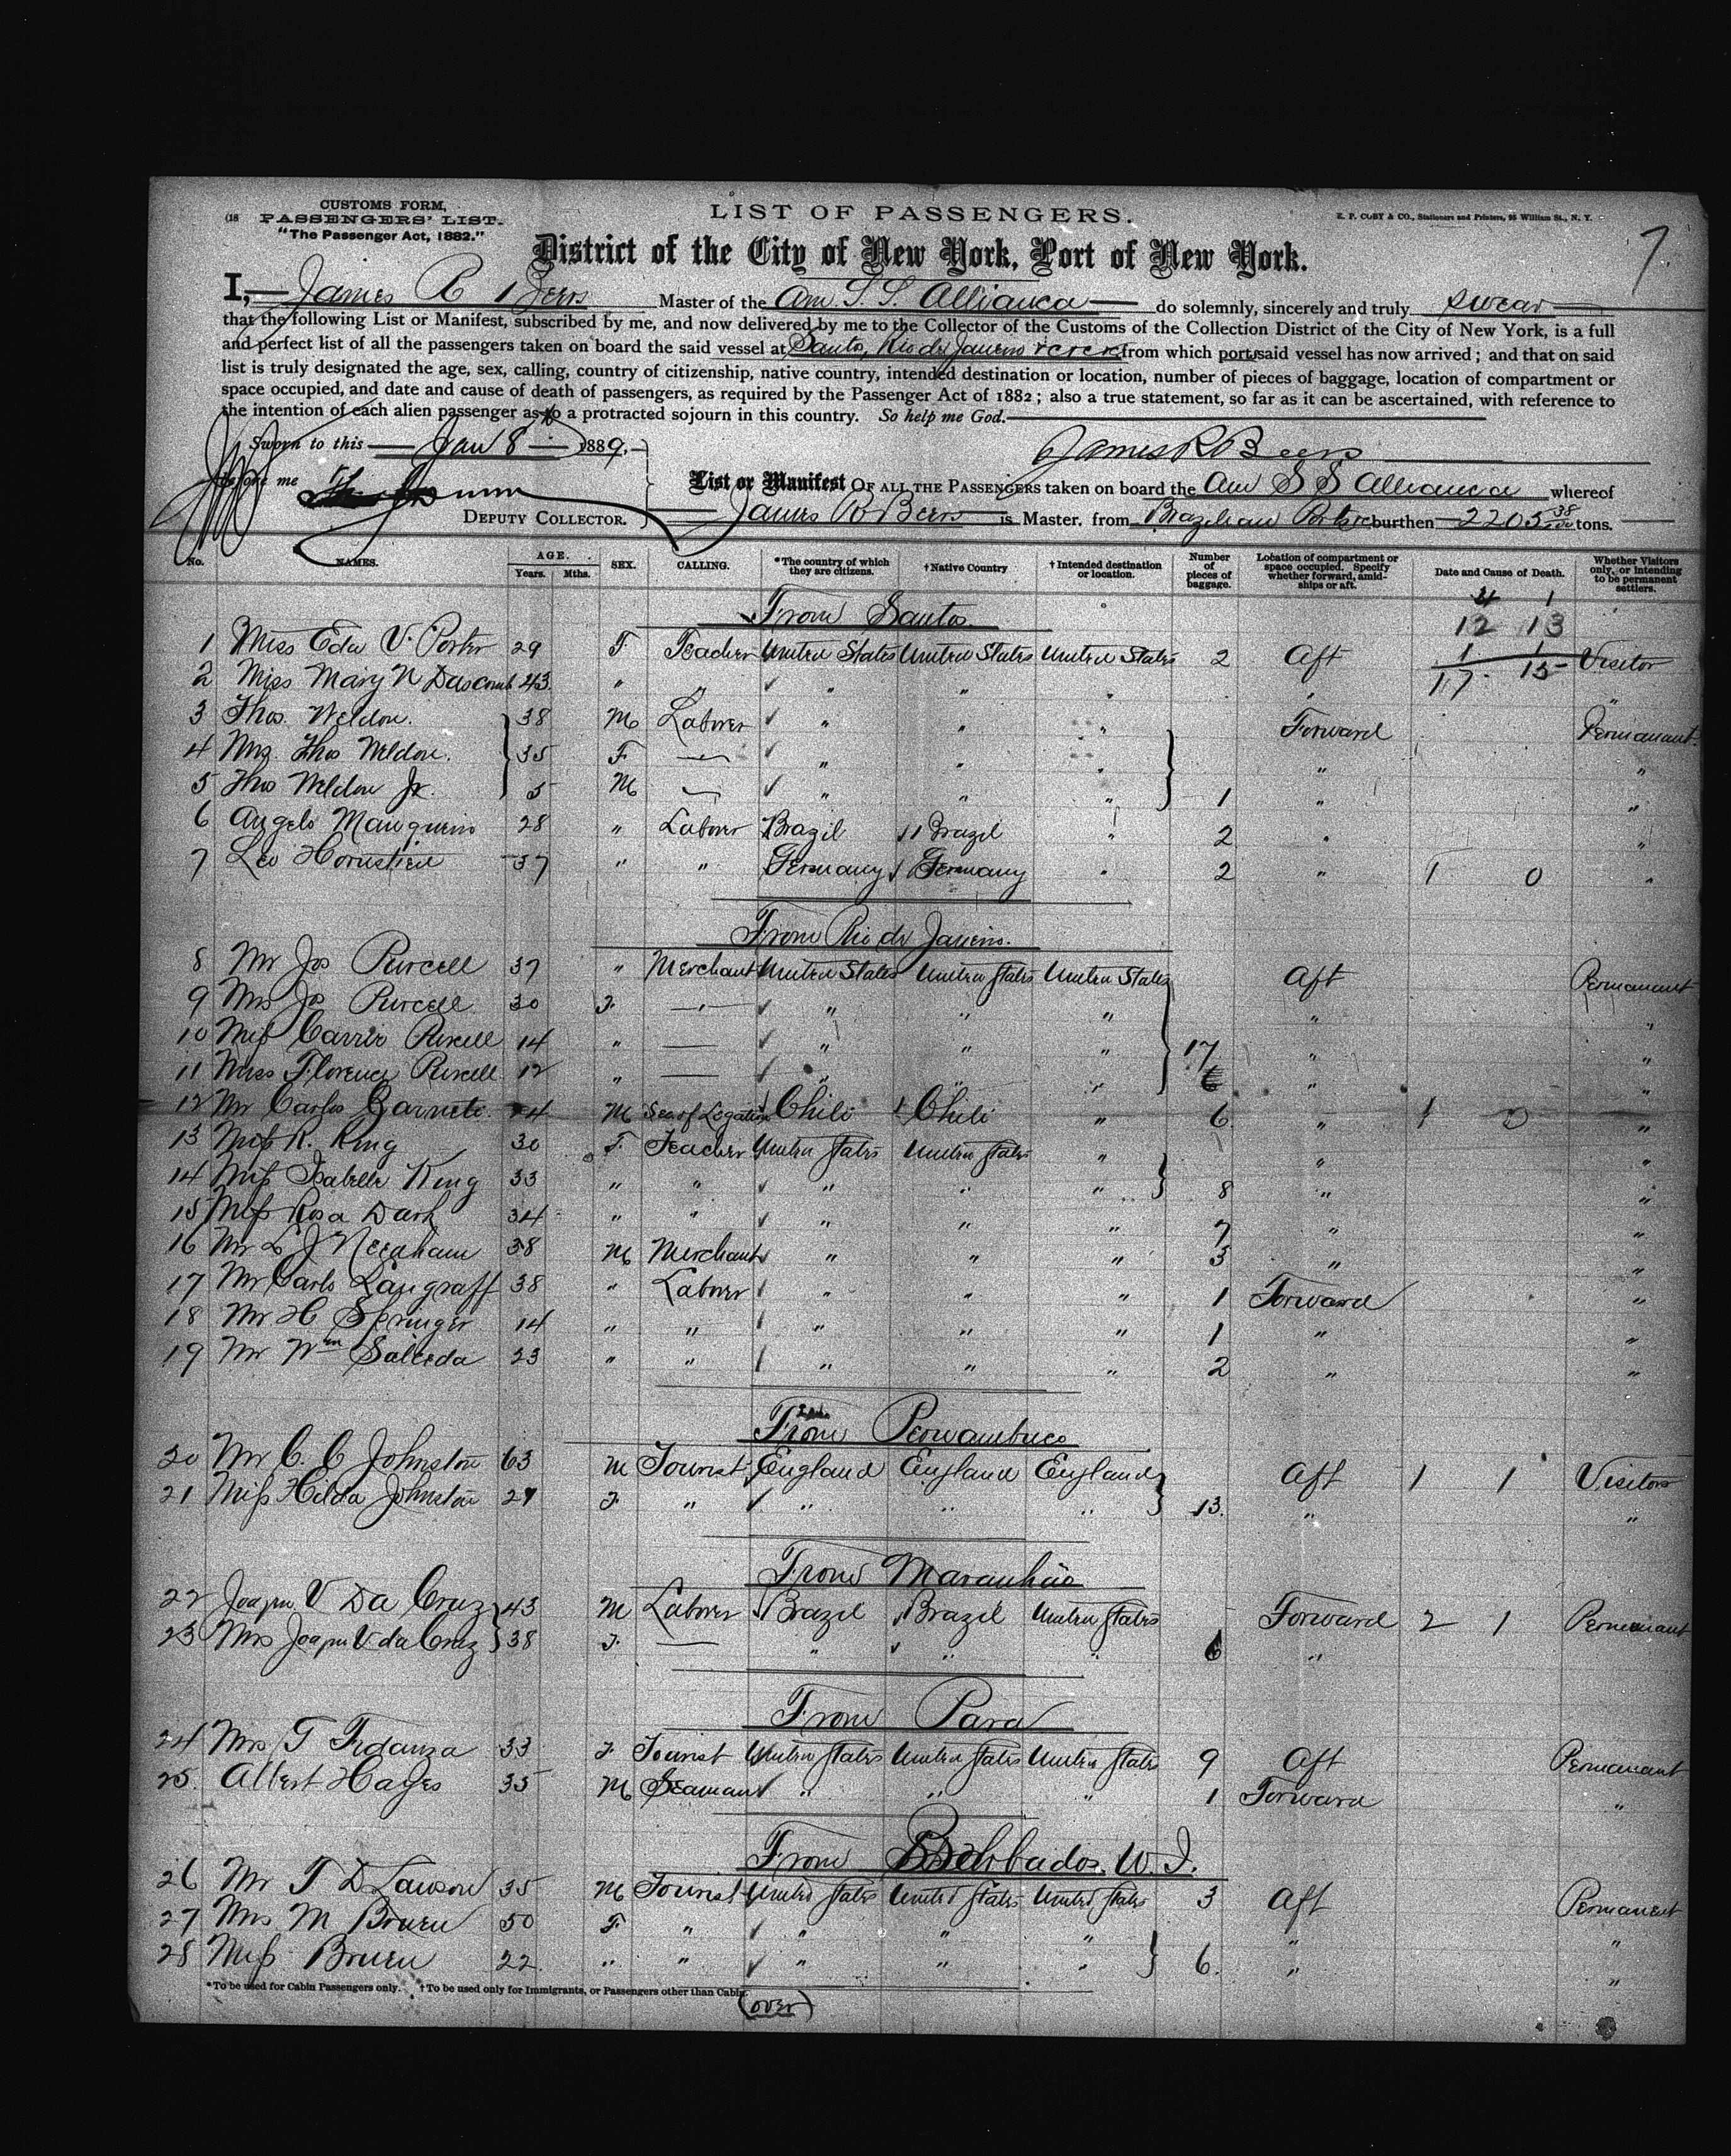 CUSTOMS FORM,
(18 PASSENGERS' LIST.
"The Passenger Act, 1882."
LIST OF PASSENGERS.
E. P. COBY & CO., Stationers and Printers, 95 William St., N. Y.
7.
District of the City of New York, Port of New York.
I, James R Beers Master of the Am. S. S. Allianca do solemnly, sincerely and truly swear
that the following List or Manifest, subscribed by me, and now delivered by me to the Collector of the Customs of the Collection District of the City of New York, is a full
and perfect list of all the passengers taken on board the said vessel at Santos, Rio de Janeiro from which port said vessel has now arrived; and that on said
list is truly designated the age, sex, calling, country of citizenship, native country, intended destination or location, number of pieces of baggage, location of compartment or
space occupied, and date and cause of death of passengers, as required by the Passenger Act of 1882; also a true statement, so far as it can be ascertained, with reference to
the intention of each alien passenger as to a protracted sojourn in this country. So help me God.
Sworn to this Jan 8 1889.
James R Beers
before me
List or Manifest OF ALL THE PASSENGERS taken on board the Am S S Allianca whereof
DEPUTY COLLECTOR.
James R Beers is Master, from Brazilian Ports burthen 2205 38/100 tons.
No. NAMES. AGE. Years. Mths. SEX. CALLING. *The country of which they are citizens. †Native Country †Intended destination or location. Number of pieces of baggage. Location of compartment or space occupied. Specify whether forward, amidships or aft. Date and Cause of Death. Whether Visitors only, or intending to be permanent settlers.
From Santos.
12 13
1 1
17 15
1 Miss Eda V. Porter 29 F. Teacher United States United States United States 2 Aft Visitor
2 Miss Mary N Dascomb 43 " " " " " " "
3 Thos. Weldon. 38 M Laborer " " " Forward Permanant
4 Mrs. Thos Weldon. 35 F — " " " " "
5 Thos Weldon Jr. 5 M — " " " 1 " "
6 Angelo 28 " Laborer Brazil Brazil " 2 " "
7 Leo Hornstien 37 " " Germany Germany " 2 " 1 0 "
From Rio de Janeiro.
8 Mr Jos Purcell 37 " Merchant United States United States United States Aft Permanant
9 Mrs Jos Purcell 30 F. — " " " " "
10 Miss Carrie Purcell 14 " — " " " 17 " "
11 Miss Florence Purcell 12 " — " " " " "
12 Mr Carlos M Sec. of Legation Chili Chili " 6 " 1 0 "
13 Miss R. King 30 F. Teacher United States United States " " "
14 Miss Isabelle King 33 " " " " " 8 " "
15 Miss Rosa Dark 34 " " " " " 7 " "
16 Mr L J Needham 38 M Merchant " " " 3 " "
17 Mr Carlo Langraff 38 " Laborer " " " 1 Forward "
18 Mr H Springer 14 " " " " " 1 " "
19 Mr Wm Salceda 23 " " " " " 2 " "
From Pernambuco
20 Mr C. C Johnston 63 M Tourist England England England Aft 1 1 Visitors
21 Miss Hilda Johnston F. " " " " 13. " "
From Maranhão
22 Joaqm V Da Cruz 43 M Laborer Brazil Brazil United States Forward 2 1 Permanant
23 Mrs Joaqm V da Cruz 38 F. — " " " 6 "
From Para
24 Mrs T Fidanza 33 F Tourist United States United States United States 9 Aft Permanant
25. Albert Hayes 35 M Seaman " " " 1 Forward "
From Barbados. W. I.
26 Mr T D Lawson 35 M Tourist United States United States United States 3 Aft Permanent
27 Mrs M Bruen 50 F. " " " " " "
28 Miss Bruen 22. " " " " " 6. " "
*To be used for Cabin Passengers only. †To be used only for Immigrants, or Passengers other than Cabin.
(over)